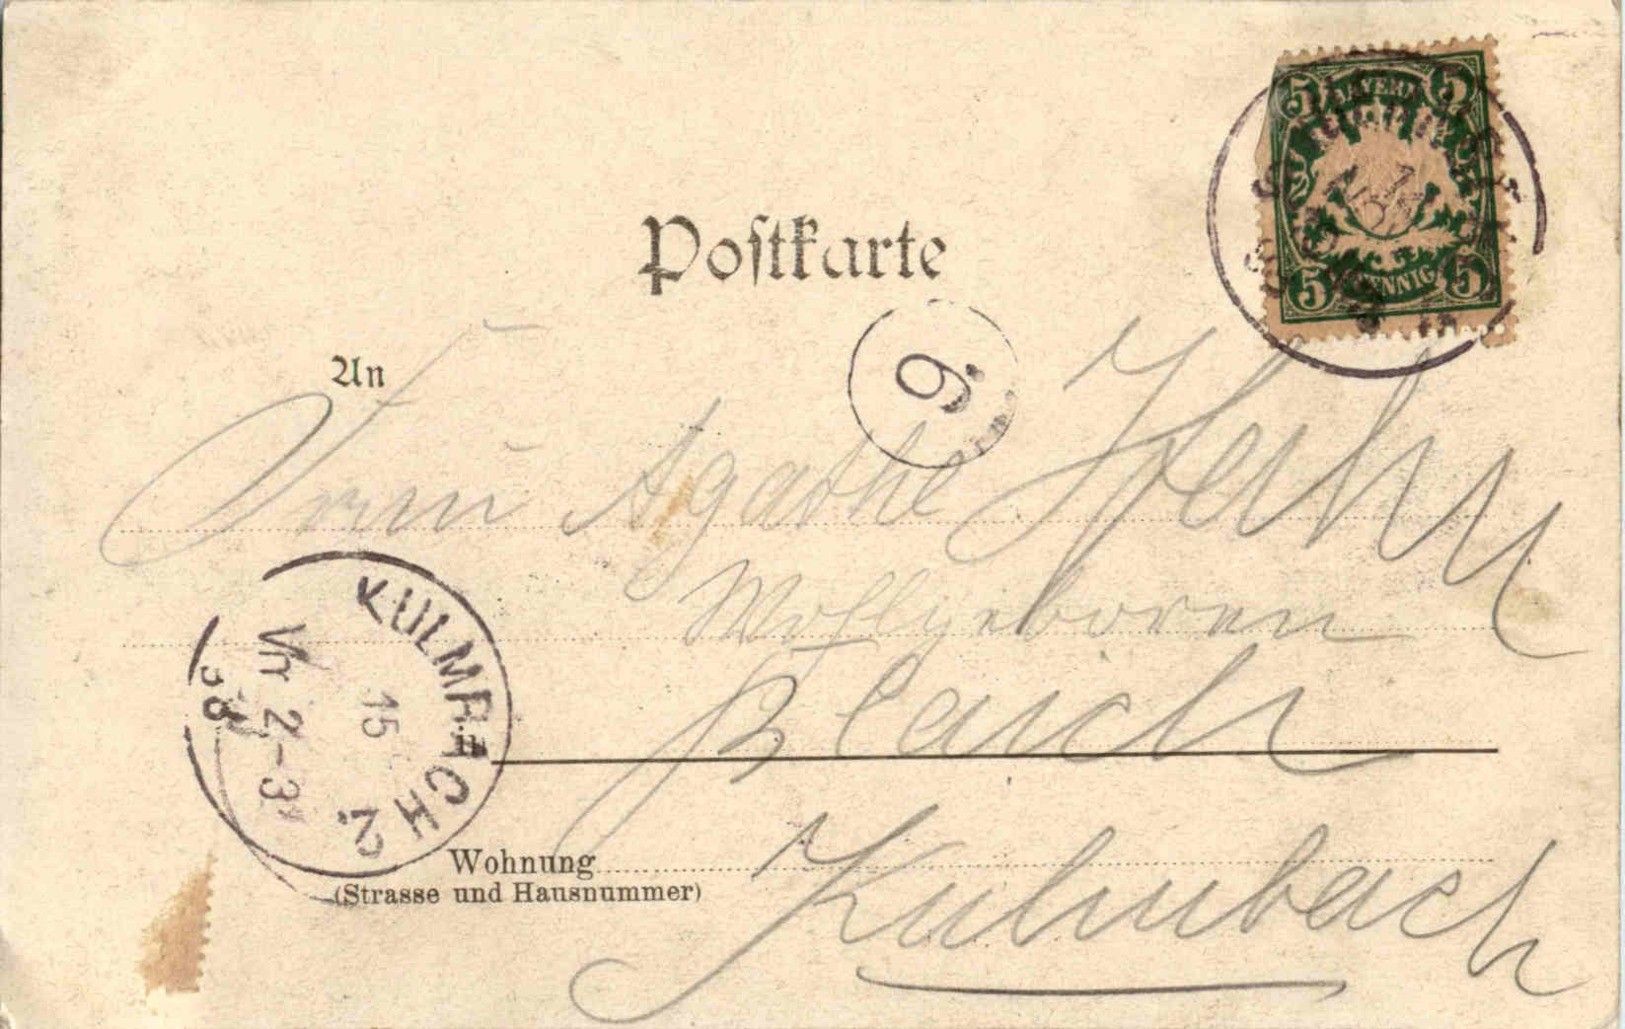 Postkarte
5 BAYERN 5
5 PFENNIG 5
9.
An
Frau Agathe Hahn
Wohlgeboren
Blaich
KULMBACH 2.
15
Vm 2-3
in
Wohnung
(Strasse und Hausnummer)
Kulmbach